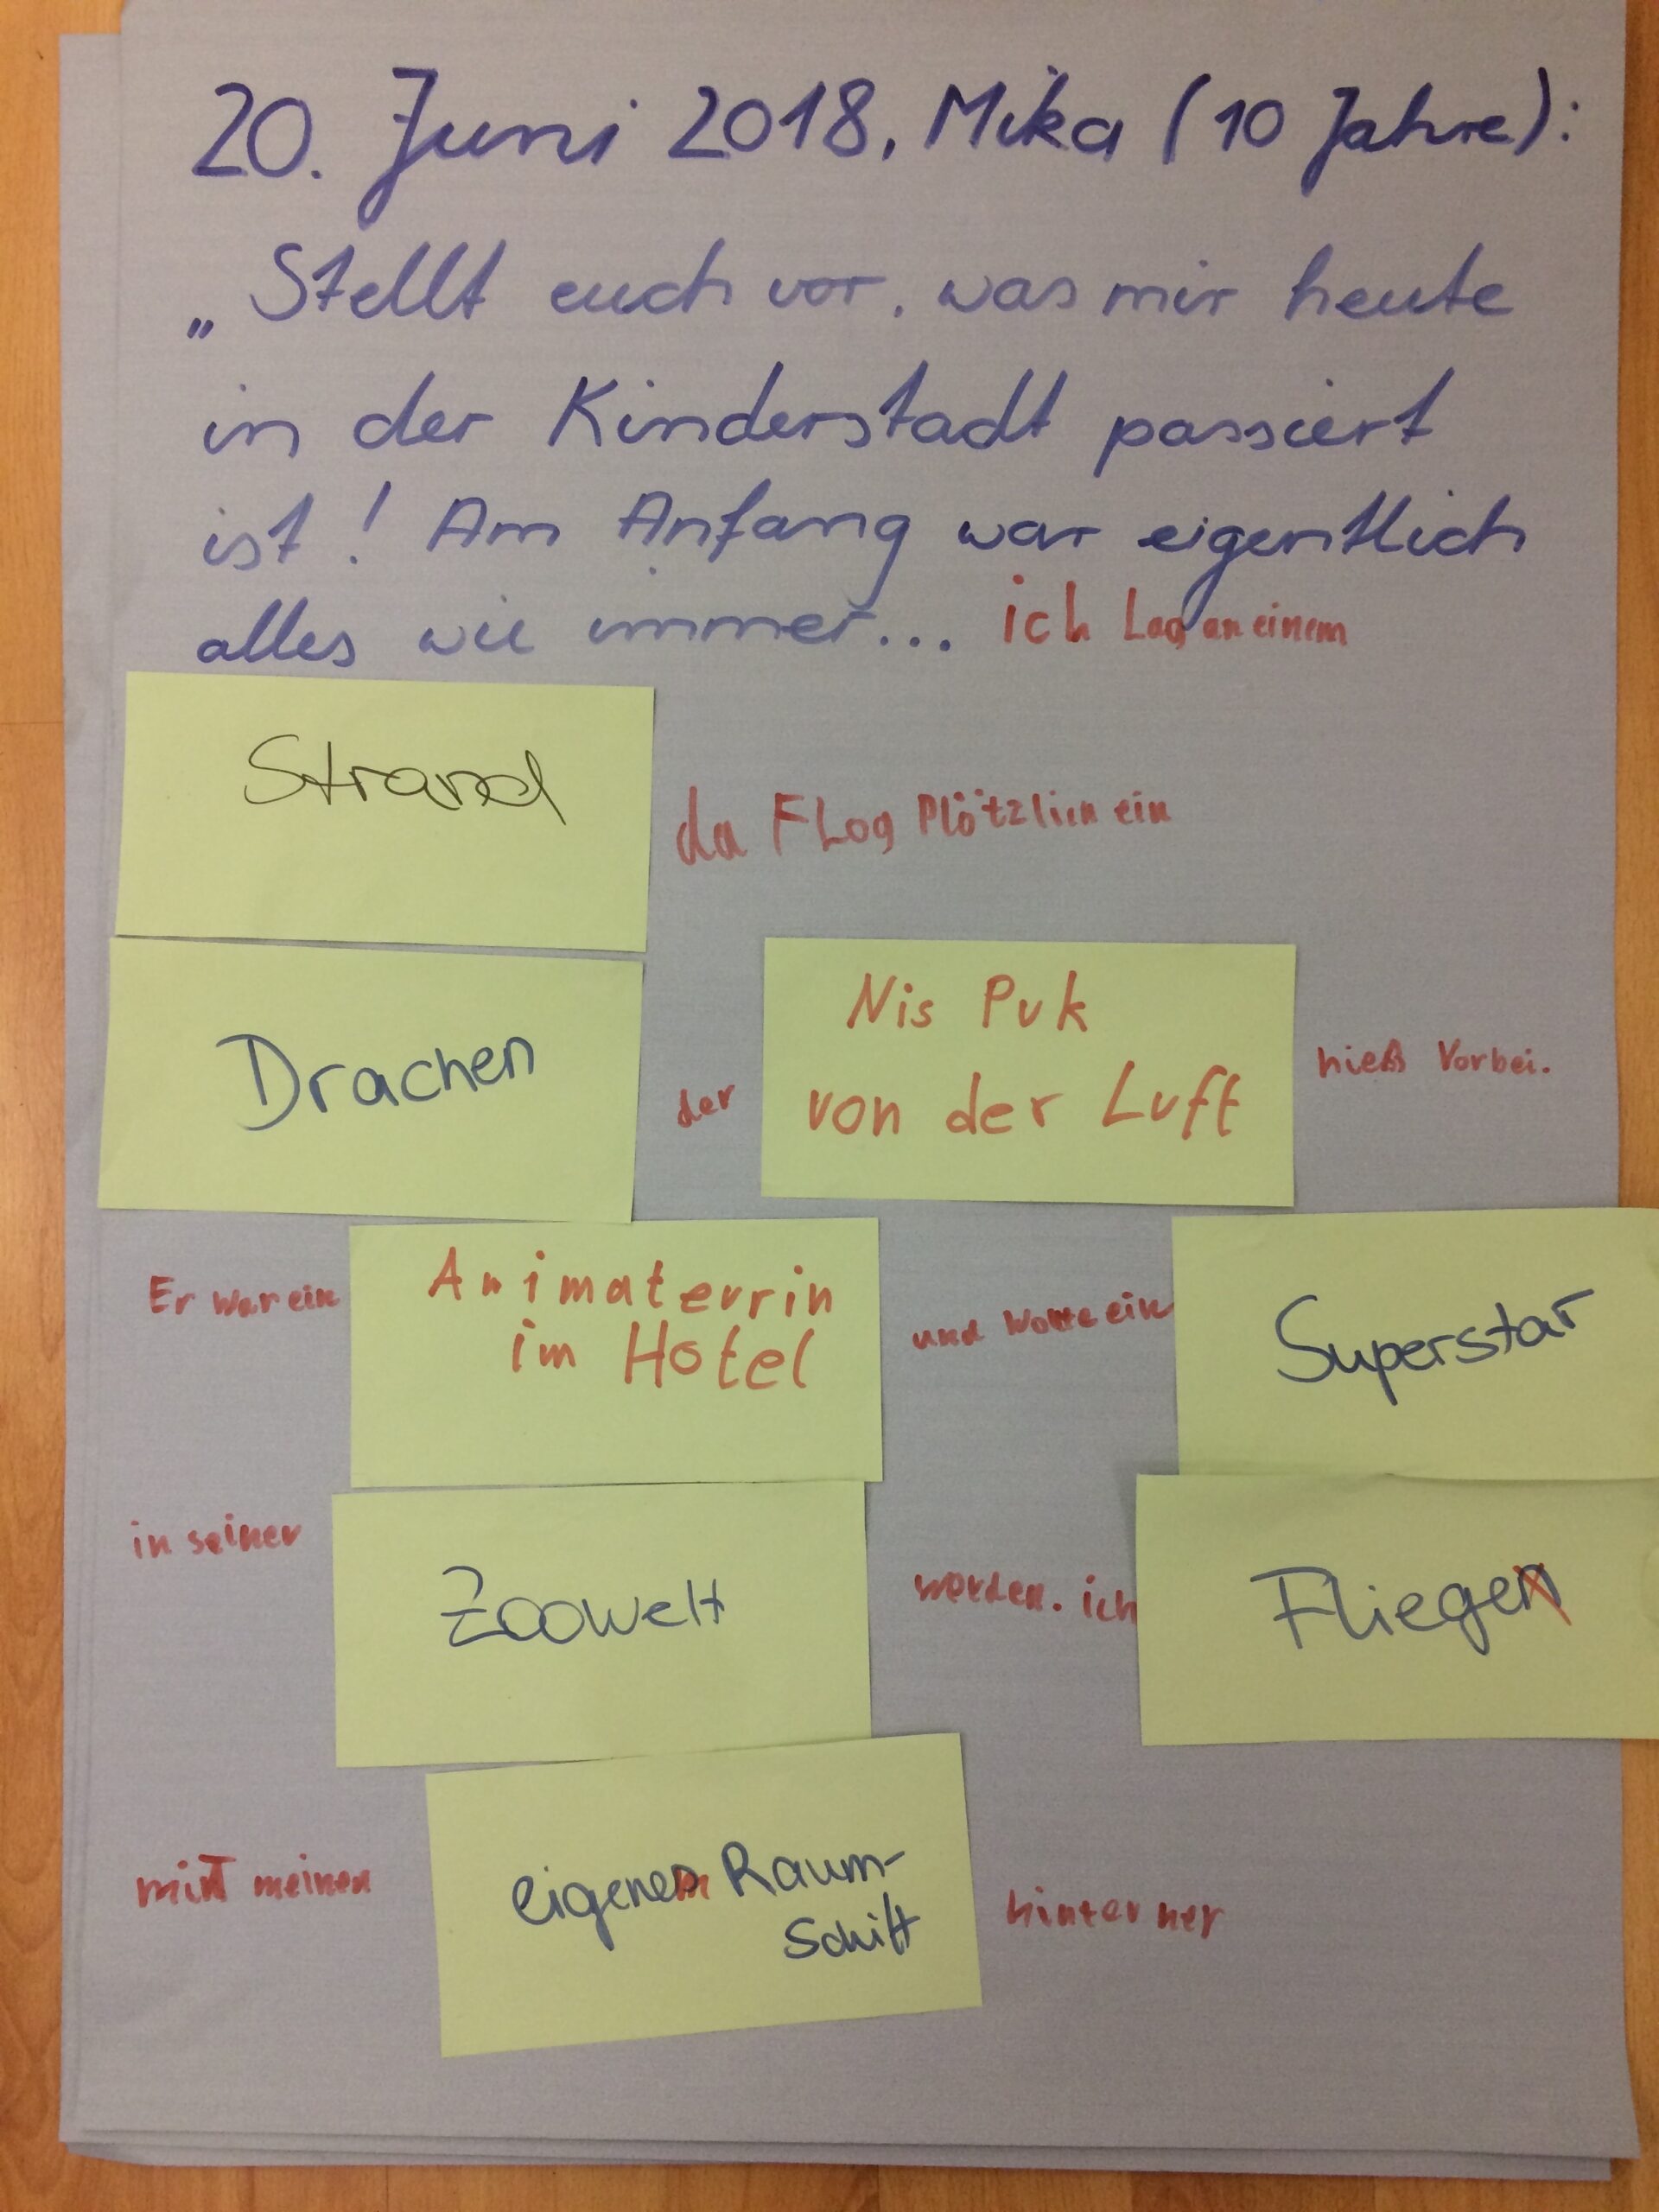 20. Juni 2018, Mika (10 Jahre):
„Stellt euch vor, was mir heute
in der Kinderstadt passiert
ist! Am Anfang war eigentlich
alles wie immer... ich Lag an einem
Strand
da FLog Plötzlich ein
Drachen
der
Nis Puk
von der Luft
hieß Vorbei.
Er war ein
Animateurin
im Hotel
und wollte ein
Superstar
in seiner
Zoowelt
werden. ich
Fliege
mit meinen
eigenem Raum-
schiff
hinterher